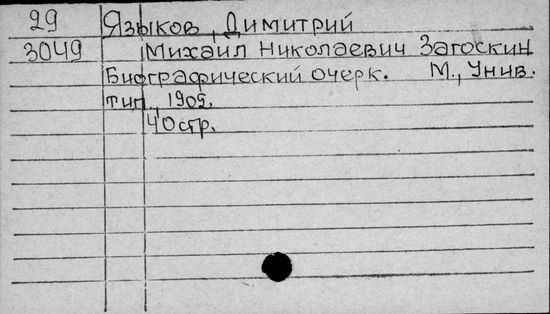 29 Языков, Димитрий
3049 Михаил Николаевич Загоскин
Биографический очерк. М., Унив.
тип., 1905.
40 стр.